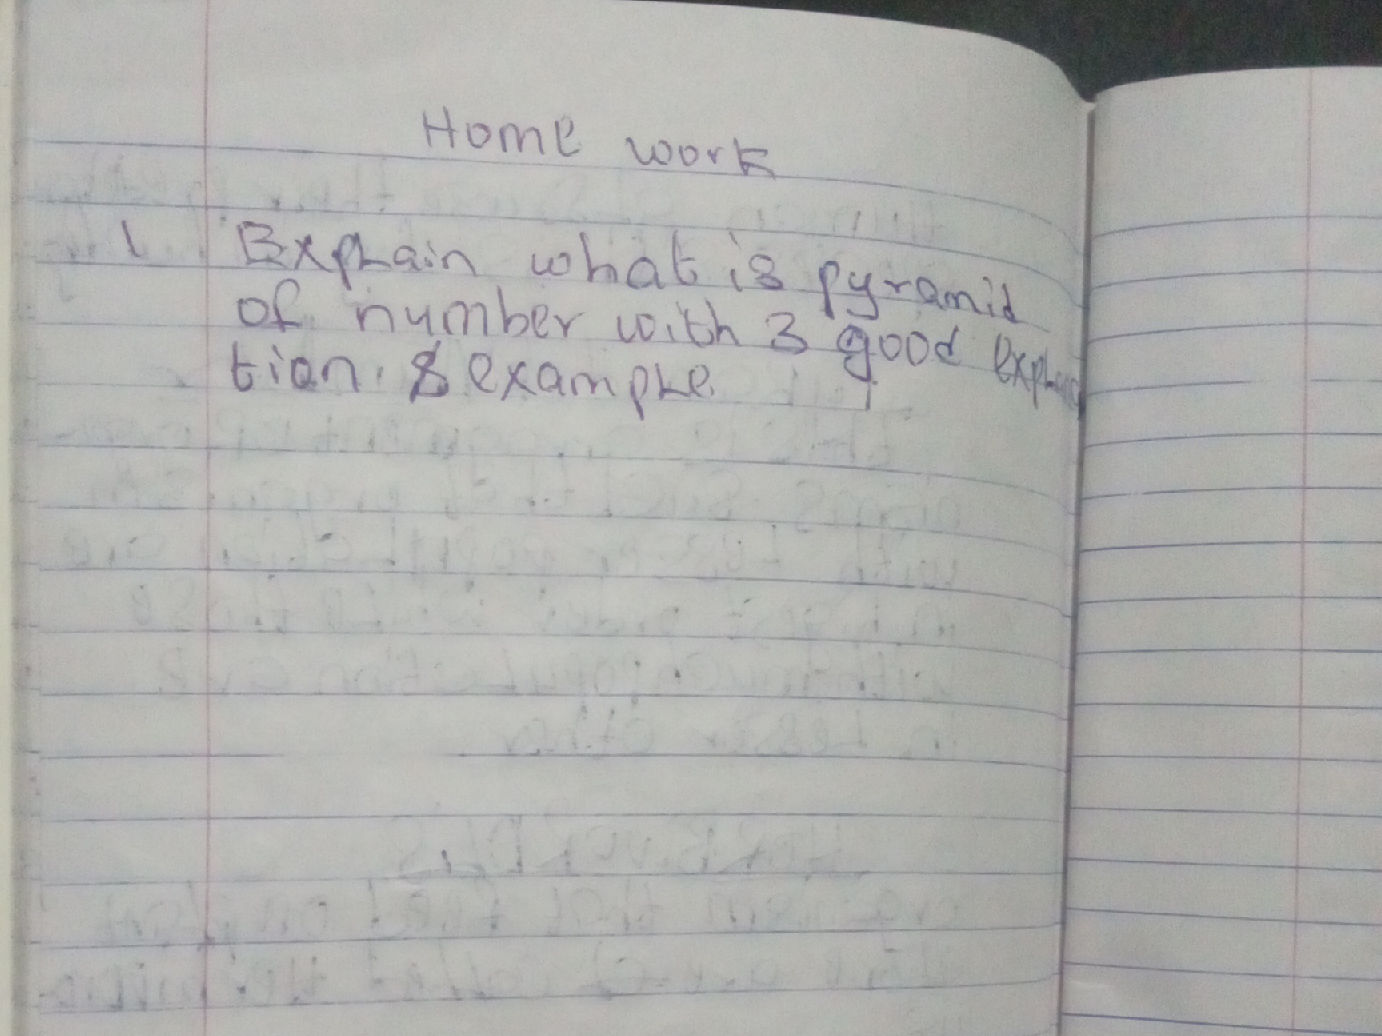 Home work
1 Explain what is pyramid
of number with 3 good expla
tion. & example.